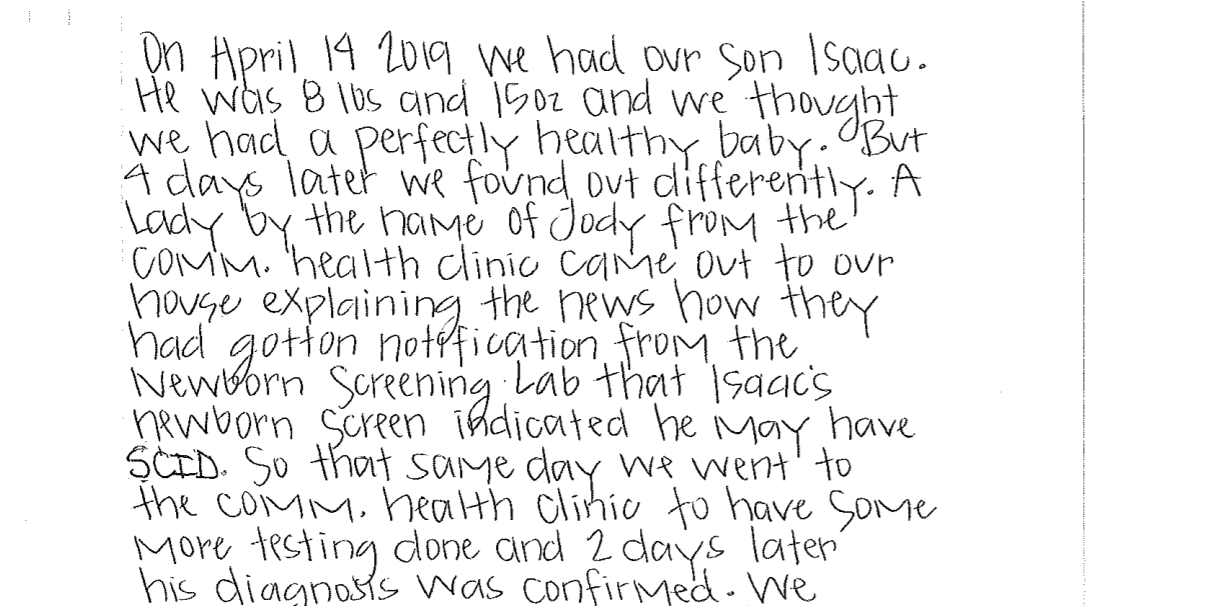 On April 14 2019 we had our son Isaac.
He was 8 lbs and 15oz and we thought
we had a perfectly healthy baby. But
4 days later we found out differently. A
Lady by the name of Jody from the
comm. health clinic came out to our
house explaining the news how they
had gotton notification from the
Newborn Screening Lab that Isaac's
newborn screen indicated he may have
SCID. So that same day we went to
the comm. health clinic to have some
more testing done and 2 days later
his diagnosis was confirmed. We